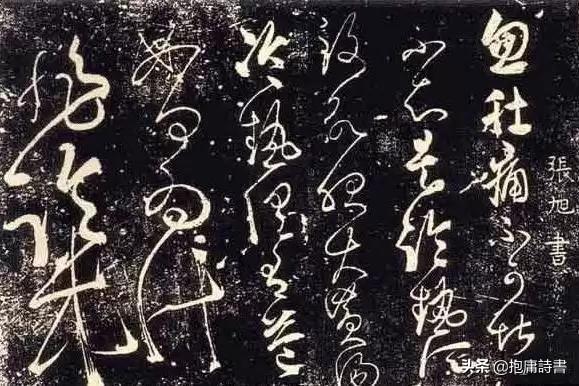 張旭書
忽肚痛不可堪
不知是冷熱所
致欲服大黃湯
冷熱俱有益
如何為計
非臨床
头条 @抱庸詩書